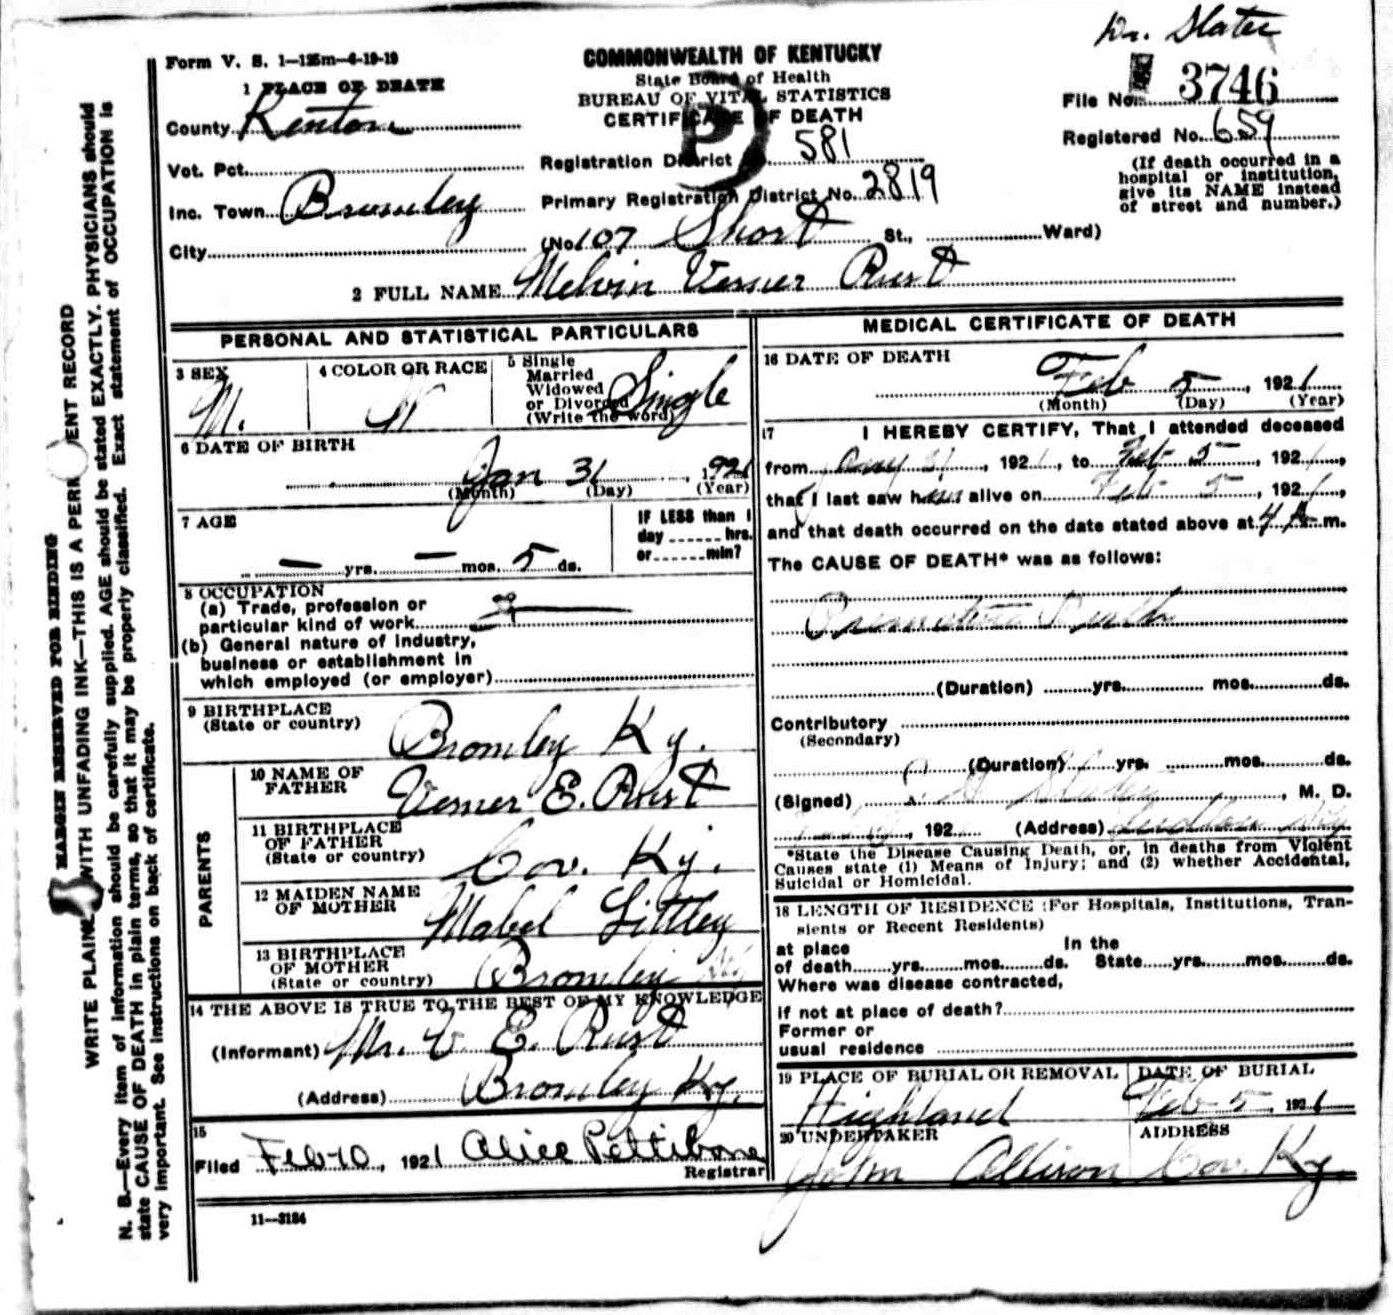 Dr. Slater
Form V. S. 1—125m—4-19-19
COMMONWEALTH OF KENTUCKY
State Board of Health
BUREAU OF VITAL STATISTICS
CERTIFICATE OF DEATH
P
File No. 3746
Registered No. 659
(If death occurred in a
hospital or institution,
give its NAME instead
of street and number.)
1 PLACE OF DEATH
County Kenton
Vot. Pct.
Registration District No. 581
Inc. Town Bromley
Primary Registration District No. 2819
City
(No. 107 Short St., Ward)
2 FULL NAME Melvin Verner Rust
PERSONAL AND STATISTICAL PARTICULARS
3 SEX M.
4 COLOR OR RACE W
5 Single
Married
Widowed
or Divorced
(Write the word) Single
6 DATE OF BIRTH
Jan 31, 1921
(Month) (Day) (Year)
7 AGE
— yrs. — mos. 5 ds.
IF LESS than 1
day ...... hrs.
or ...... min?
8 OCCUPATION
(a) Trade, profession or
particular kind of work
(b) General nature of industry,
business or establishment in
which employed (or employer)
9 BIRTHPLACE
(State or country) Bromley Ky.
PARENTS
10 NAME OF
FATHER Verner E. Rust
11 BIRTHPLACE
OF FATHER
(State or country) Cov. Ky.
12 MAIDEN NAME
OF MOTHER Mabel Littley
13 BIRTHPLACE
OF MOTHER
(State or country) Bromley Ky
14 THE ABOVE IS TRUE TO THE BEST OF MY KNOWLEDGE
(Informant) Mr. V E. Rust
(Address) Bromley Ky.
15
Filed Feb 10, 1921 Alice Pettibone
Registrar
11—3184
MEDICAL CERTIFICATE OF DEATH
16 DATE OF DEATH
Feb 5, 1921
(Month) (Day) (Year)
17 I HEREBY CERTIFY, That I attended deceased
from Jany 31, 1921, to Feb 5, 1921,
that I last saw him alive on Feb 5, 1921,
and that death occurred on the date stated above at 4 A m.
The CAUSE OF DEATH* was as follows:
Premature Birth
(Duration) yrs. mos. ds.
Contributory
(Secondary)
(Duration) yrs. mos. ds.
(Signed) Slater, M. D.
, 192 (Address) Ludlow Ky
*State the Disease Causing Death, or, in deaths from Violent
Causes state (1) Means of Injury; and (2) whether Accidental,
Suicidal or Homicidal.
18 LENGTH OF RESIDENCE (For Hospitals, Institutions, Tran-
sients or Recent Residents)
at place In the
of death yrs. mos. ds. State yrs. mos. ds.
Where was disease contracted,
if not at place of death?
Former or
usual residence
19 PLACE OF BURIAL OR REMOVAL
Highland
DATE OF BURIAL
Feb 5, 1921
20 UNDERTAKER
John Allison
ADDRESS
Cov. Ky.
MARGIN RESERVED FOR BINDING
WRITE PLAINLY WITH UNFADING INK—THIS IS A PERMANENT RECORD
N. B.—Every item of information should be carefully supplied. AGE should be stated EXACTLY. PHYSICIANS should
state CAUSE OF DEATH in plain terms, so that it may be properly classified. Exact statement of OCCUPATION is
very important. See instructions on back of certificate.